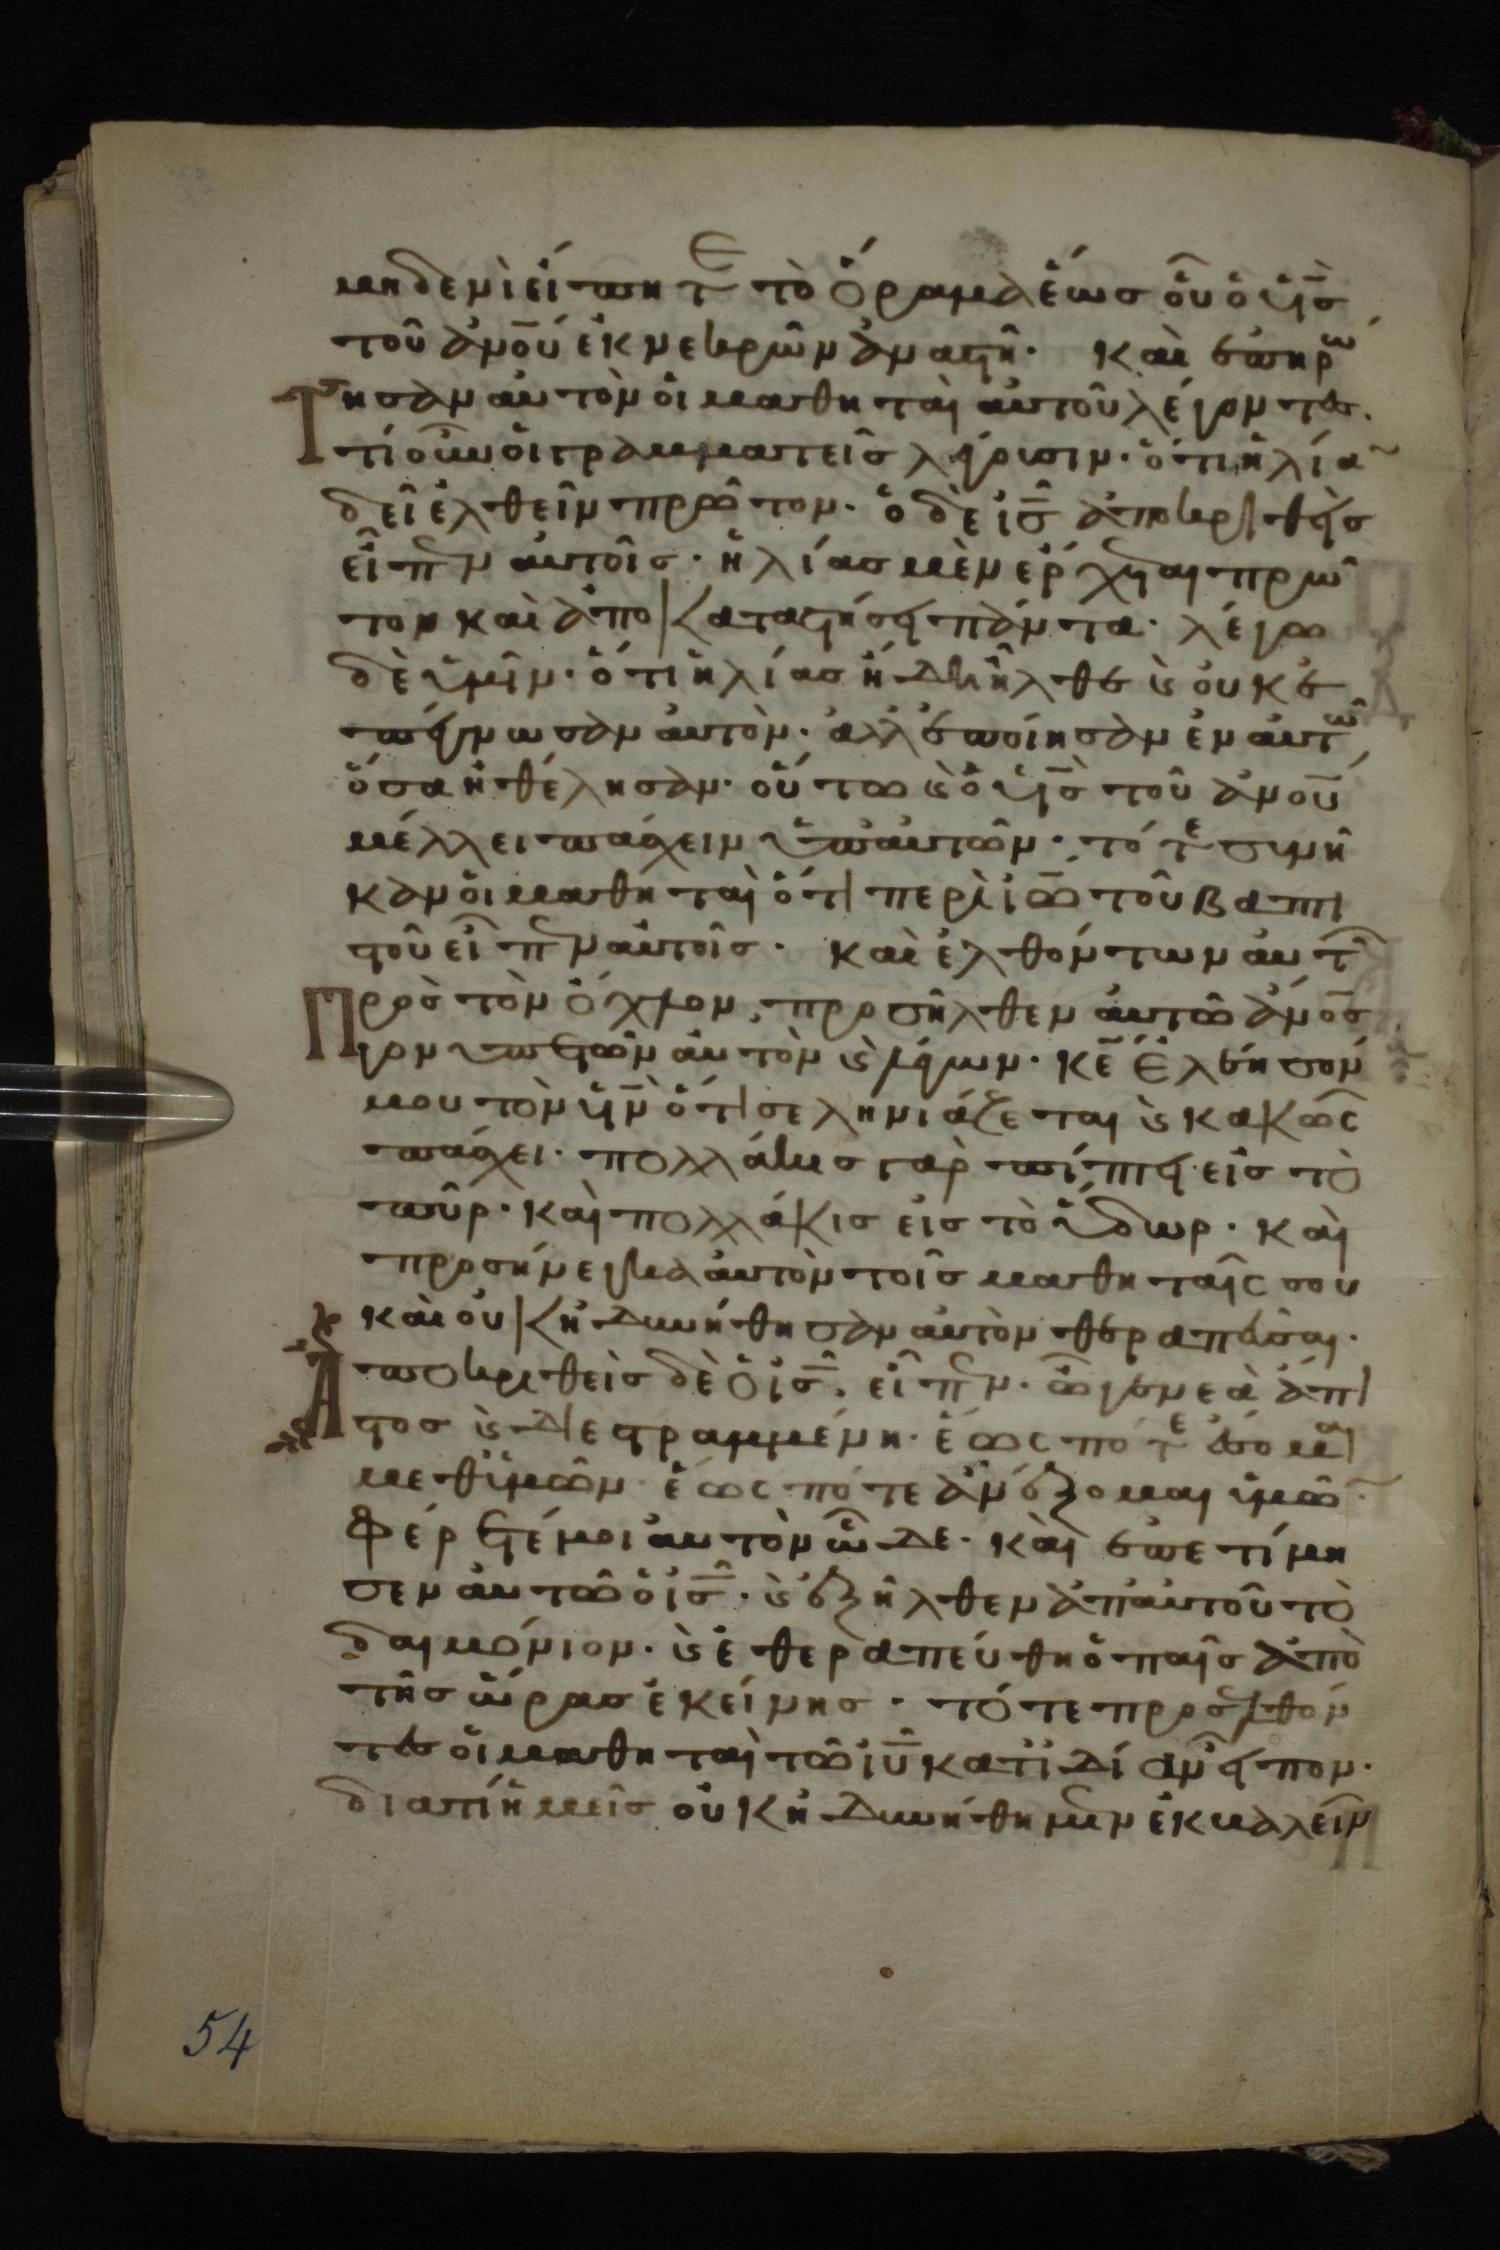 μηδενὶ εἴπητε τὸ ὅραμα ἕως οὗ ὁ υἱ̅ς̅
τοῦ ἀν̅ο̅υ̅ ἐκ νεκρῶν ἀναστῆ· καὶ ἐπηρώ
τησαν αὐτὸν οἱ μαθηταὶ αὐτοῦ λέγοντες·
τί οὖν οἱ γραμματεῖς λέγουσιν· ὅτι ἠλίαν
δεῖ ἐλθεῖν πρῶτον· ὁ δὲ ι̅ς̅ ἀποκριθεὶς
εἶπεν αὐτοῖς· ἠλίας μὲν ἔρχεται πρῶ
τον καὶ ἀποκαταστήσει πάντα· λέγω
δὲ ὑμῖν· ὅτι ἠλίας ἤδη ἦλθε κ οὐκ ἐ
πέγνωσαν αὐτὸν· ἀλλ' ἐποίησαν ἐν αὐτῶ
ὅσα ἠθέλησαν· οὕτω κ ὁ υἱ̅ς̅ τοῦ ἀν̅ο̅υ̅
μέλλει πάσχειν ὑπ' αὐτῶν· τότε συνῆ
καν οἱ μαθηταὶ ὅτι περὶ ι̅ω̅ τοῦ βαπτι
στοῦ εἶπεν αὐτοῖς· καὶ ἐλθόντων αὐτῶν
πρὸς τὸν ὄχλον, προσῆλθεν αὐτῶ ἀν̅ο̅ς̅
γονυπετῶν αὐτὸν κ λέγων· κ̅ε̅ ἐλέησόν
μου τὸν υἱ̅ν̅ ὅτι σεληνιάζεται κ κακῶς
πάσχει· πολλάκις γὰρ πίπτει εἰς τὸ
πῦρ· καὶ πολλάκις εἰς τὸ ὕδωρ· καὶ
προσήνεγκα αὐτὸν τοῖς μαθηταῖς σου
καὶ οὐκ ἠδυνήθησαν αὐτὸν θεραπεῦσαι·
ἀποκριθεὶς δὲ ὁ ι̅ς̅, εἶπεν· ὦ γενεὰ ἄπι
στος κ διεστραμμένη· ἕως πότε ἔσομαι
μεθ' ὑμῶν· ἕως πότε ἀνέξομαι ὑμῶν·
φέρετέ μοι αὐτὸν ὧδε· καὶ ἐπετίμη
σεν αὐτῶ ὁ ι̅ς̅· κ ἐξῆλθεν ἀπ' αὐτοῦ τὸ
δαιμόνιον· κ ἐθεραπεύθη ὁ παῖς ἀπὸ
τῆς ὥρας ἐκείνης· τότε προσελθόν
τες οἱ μαθηταὶ τῶ ι̅υ̅ κατ' ἰδίαν εἶπον·
διατί ἡμεῖς οὐκ ἠδυνήθημεν ἐκβαλεῖν
54